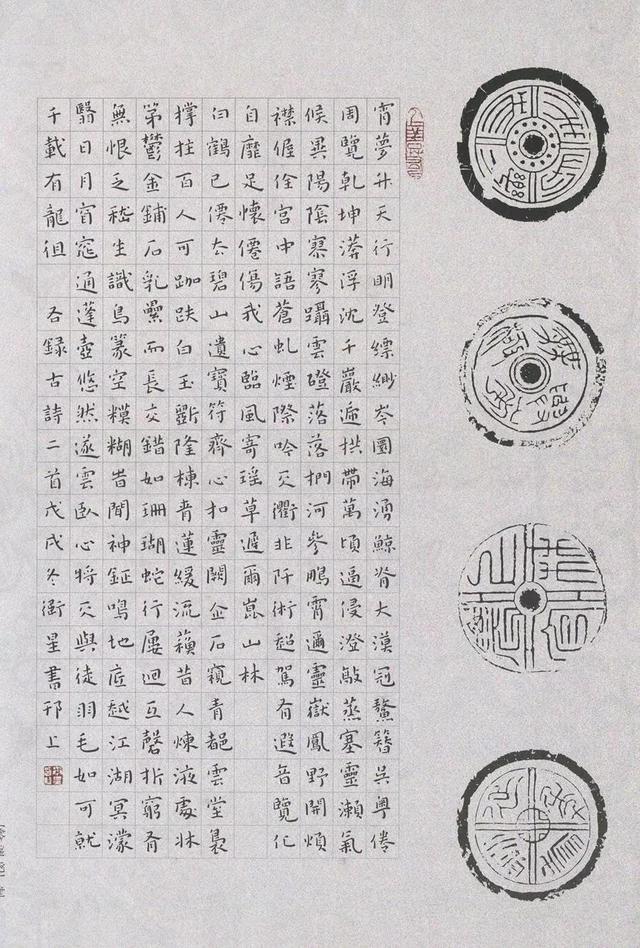 宵夢升天行明登縹緲岑圜海湧鯨脊大漠冠鰲簪吳粵倦
周覽乾坤漭浮沈千巖遞拱帶萬頃逼浸澄敲蒸塞靈瀨氣
候異陽陰寡寒躡雲磴落落捫河參鵬霄邇靈嶽鳳野開煩
襟偓佺宮中語蒼虬煙際吟天衢非阡術趨駕有遐音覽化
自靡足懷僊傷我心臨風寄瑤草遞爾崑山林
白鶴已僊去碧山遺寶符齊心扣靈闕企石窺青都雲堂裊
撑拄百人可跏趺白玉斵隆棟青蓮緩流蘇昔人煉液處牀
第鬱金鋪石乳纍而長交錯如珊瑚蛇行屢迴互磬折窮脊
無恨乏嵇生識鳥篆空糢糊昔聞神鉦鳴地底越江湖冥濛
翳日月窅窱通蓬壺悠然遂雲臥心將天與徒羽毛如可就
千載有龍徂 右錄古詩二首戊戌冬衝星書邗上